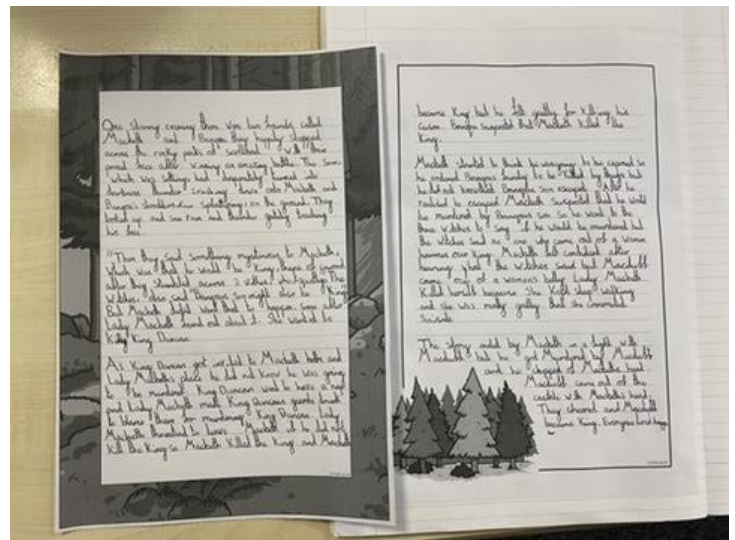 One stormy evening there was two friends called
Macbeth and Banquo they happily stepped
across the rocky path of scotland with their
proud face after winning an amazing battle. The sun
which was setting had turned into
darkness thunder crashing down onto Macbeth and
Banquo's shoulders rain splattering on the ground. They
looked up and saw rain and thunder touching
his face
"Then they said something mysterious to Macbeth
which was that he would be King of
after they stumbled across 3 witches which The
Witches also said "Banquos son might also be King
But Macbeth didnt want that to happen. Soon after
Lady Macbeth found out about it. She wanted to
Kill King Duncan
As King Duncan got invited to Macbeth both and
Lady Macbeth's place he did not know he was going
to be murdered. King Duncan went to have a nap
and Lady Macbeth made King Duncans guards drunk
to blame them for murdering King Duncan. Lady
Macbeth threatened to leave Macbeth if he did not
kill the King so Macbeth Killed the King and Macbeth
became King but he felt guilty for killing his
cusion. Banquo suspected that Macbeth Killed the
King.
Macbeth started to think he was going to be exposed so
he ordered Banquos family to be killed by thugs but
Banquos son escaped. After he
realised he escaped Macbeth suspected that he would
be murdered by Banquos son so he went to the
three witches to say if he would be murdered but
the witches said no one who came out of a woman
our King. Macbeth felt confident after
hearing what the witches said but Macduff
came out of a womens belly. Lady Macbeth
Killed herself because she kept sleep walking
and she was really guilty that she commited
suicide
The story ended by Macbeth in a fight with
Macduff but he got Murdered by Macduff
and he chopped of Macbeths head
Macduff came out of the
castle with Macbeths head.
They cheered and Macduff
became King. Everyone lived happy